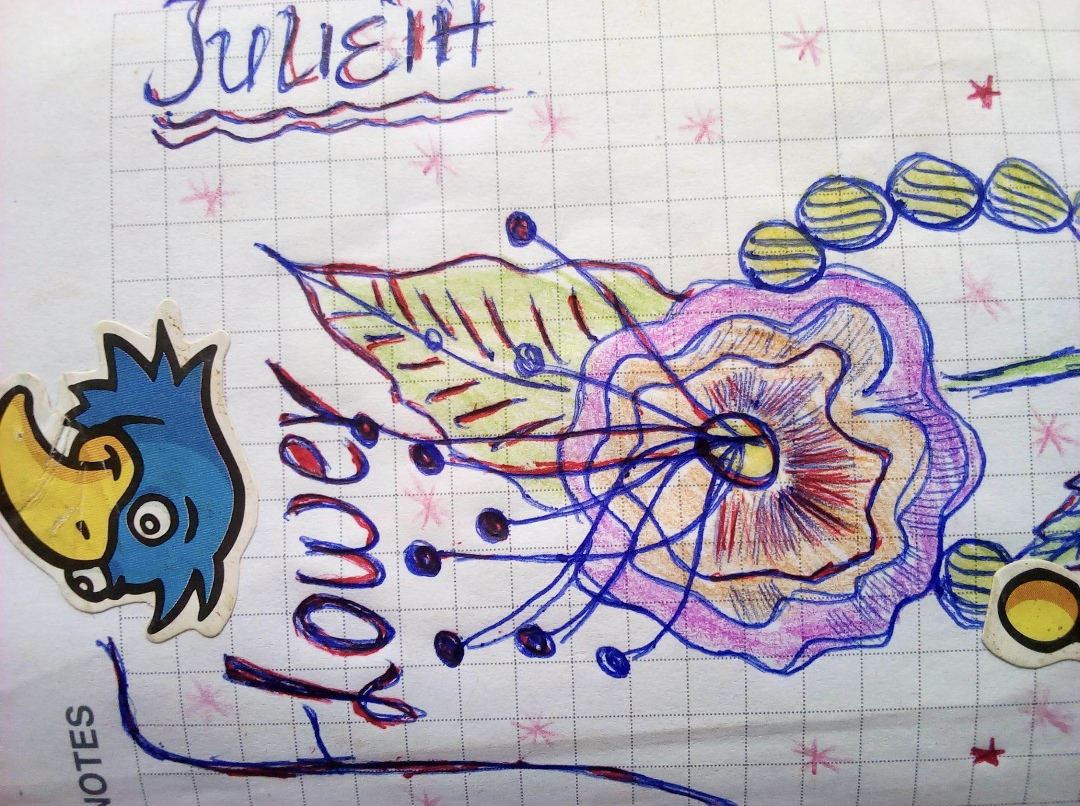 JULIETH
Flower
NOTES